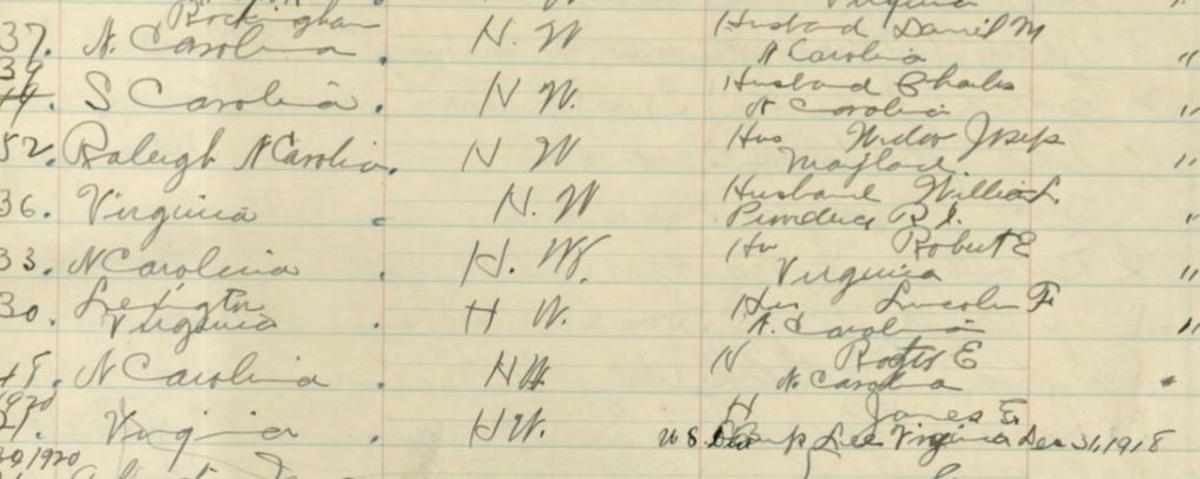 Rockingham
37. N. Carolina . H. W Husband Daniel M
N Carolina "
39
S Carolina . H W. Husband Charles
N Carolina "
52. Raleigh N Carolina. H W Hus Joseph
Maryland "
36. Virginia H. W Husband William L.
Providence R I. "
33. N Carolina . H. W. Hu Robert E
Virginia "
Lexington
30. Virginia . H W. Hus Lincoln F
N. Carolina "
N Carolina . H W. H E
N. Carolina "
1920 H James E.
Virginia . H W. U.S. Camp Lee Virginia Dec 31, 1918
1920